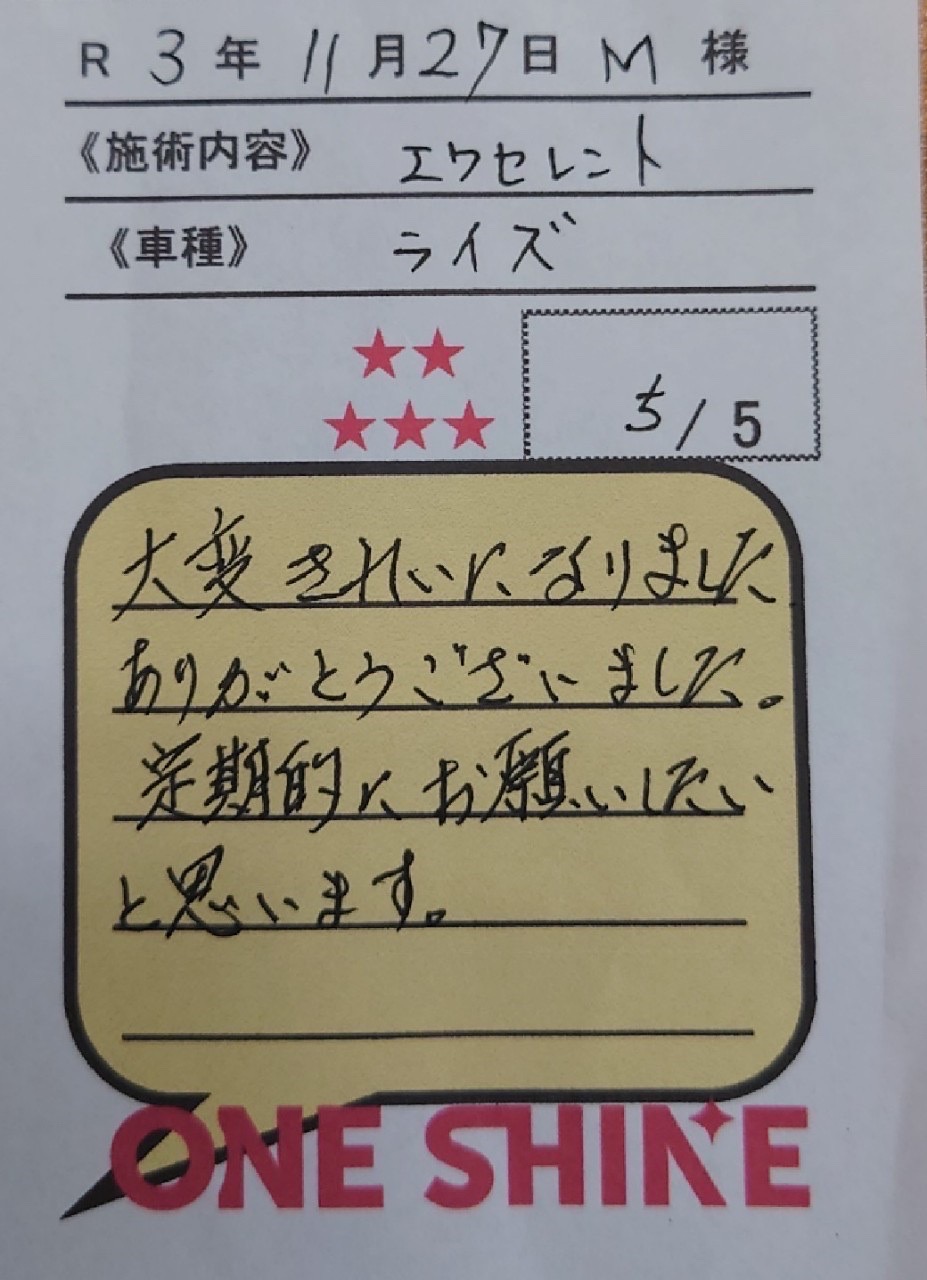 R 3年 11月27日 M 様
《施術内容》 エクセレント
《車種》 ライズ
5/5
大変きれいになりました
ありがとうございました。
定期的にお願いしたい
と思います。
ONE SHINE